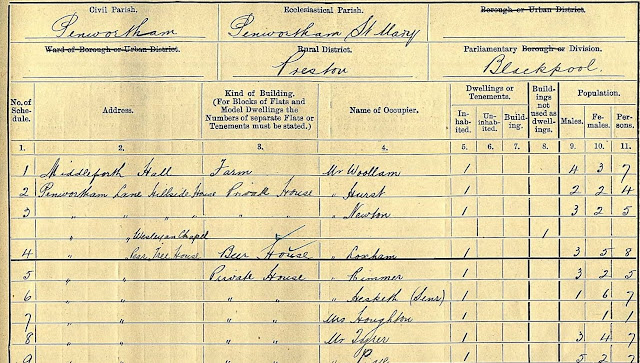 Civil Parish. Ecclesiastical Parish. Borough or Urban District.
Penwortham Penwortham St Mary
Ward of Borough or Urban District. Rural District. Parliamentary Borough or Division.
Preston Blackpool.
No. of Schedule. Address. Kind of Building. (For Blocks of Flats and Model Dwellings the Numbers of separate Flats or Tenements must be stated.) Name of Occupier. Dwellings or Tenements. Inhabited. Uninhabited. Building. Buildings not used as dwellings. Population. Males. Females. Persons.
1. 2. 3. 4. 5. 6. 7. 8. 9. 10. 11.
1 Middleforth Hall Farm Mr Woollam 1 4 3 7
2 Penwortham Lane Hillside House Private House " Hurst 1 2 2 4
3 " " " " " " " Newton 1 3 2 5
" " Wesleyan Chapel 1
4 " Pear Tree House Beer House " Loxham 1 3 5 8
5 " " Private House " Rimmer 1 3 2 5
6 " " " " " Hesketh (Senr) 1 1 6 7
7 " " " " Mrs Houghton 1 1 1
8 " " " " Mr 1 3 4 7
9 " " " " " 1 5 2 7